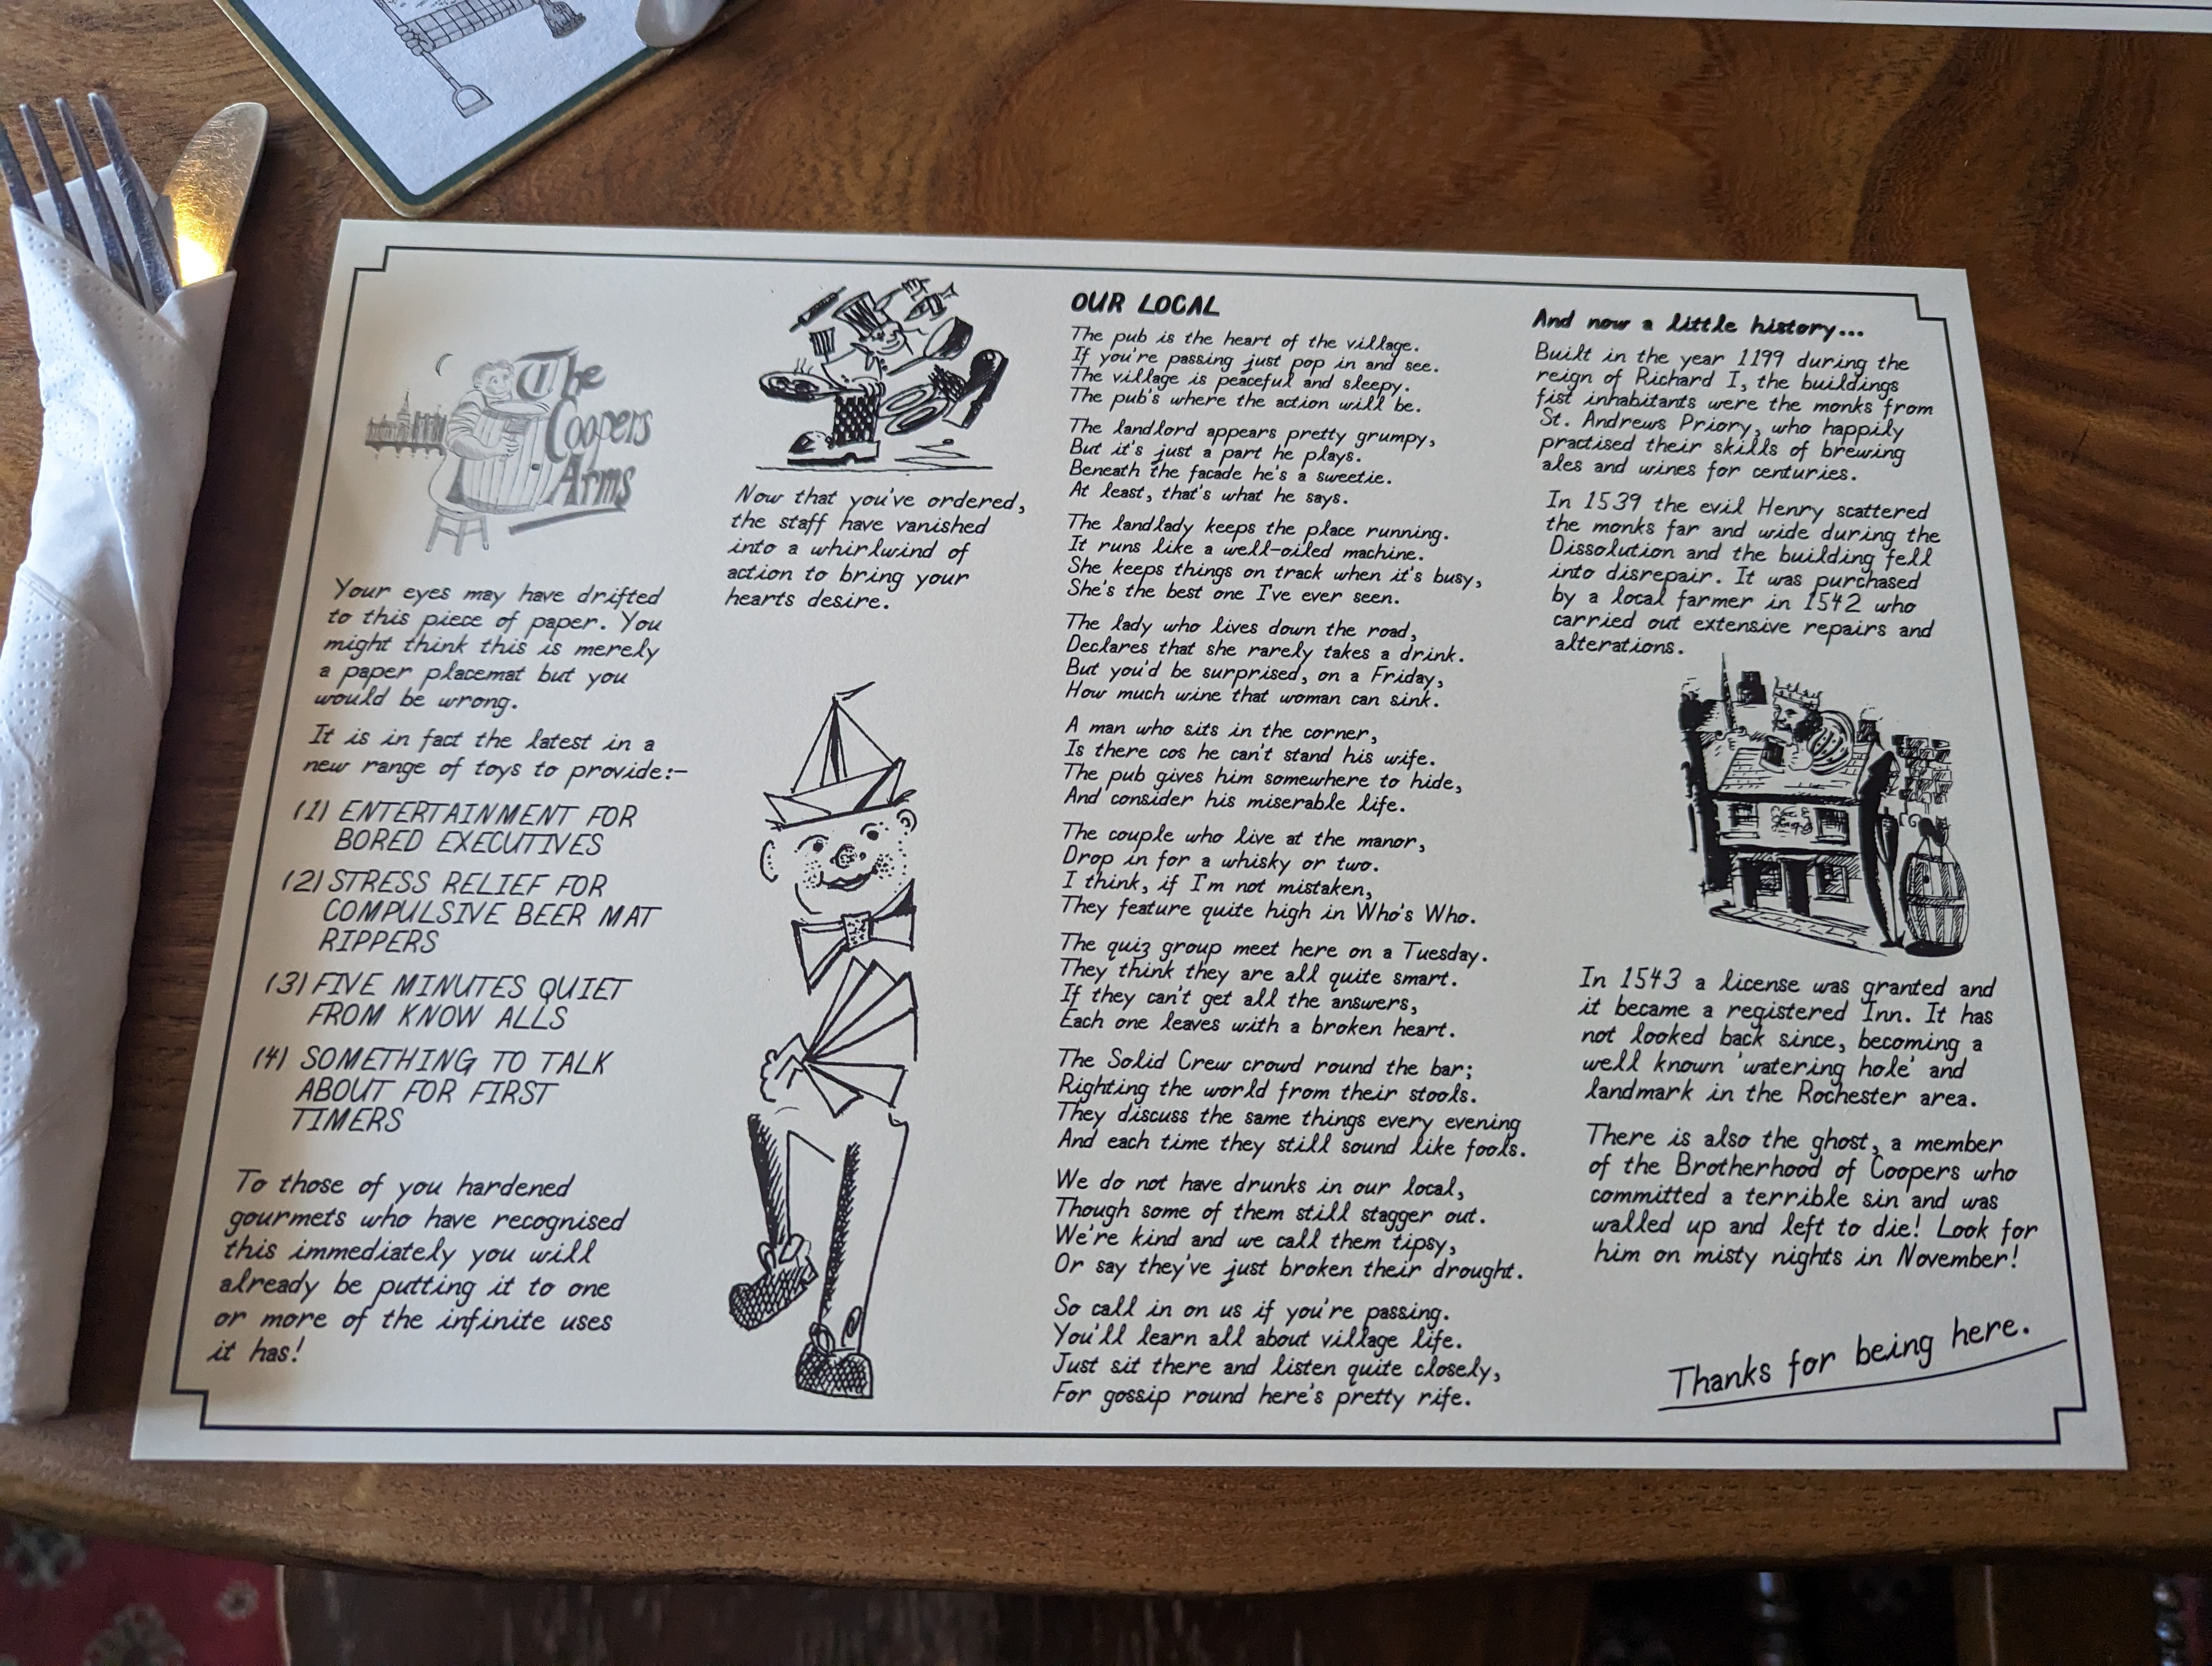 The
Coopers
Arms
Your eyes may have drifted
to this piece of paper. You
might think this is merely
a paper placemat but you
would be wrong.
It is in fact the latest in a
new range of toys to provide:-
(1) ENTERTAINMENT FOR
BORED EXECUTIVES
(2) STRESS RELIEF FOR
COMPULSIVE BEER MAT
RIPPERS
(3) FIVE MINUTES QUIET
FROM KNOW ALLS
(4) SOMETHING TO TALK
ABOUT FOR FIRST
TIMERS
To those of you hardened
gourmets who have recognised
this immediately you will
already be putting it to one
or more of the infinite uses
it has!
Now that you've ordered,
the staff have vanished
into a whirlwind of
action to bring your
hearts desire.
OUR LOCAL
The pub is the heart of the village.
If you're passing just pop in and see.
The village is peaceful and sleepy.
The pub's where the action will be.
The landlord appears pretty grumpy,
But it's just a part he plays.
Beneath the facade he's a sweetie.
At least, that's what he says.
The landlady keeps the place running.
It runs like a well-oiled machine.
She keeps things on track when it's busy,
She's the best one I've ever seen.
The lady who lives down the road,
Declares that she rarely takes a drink.
But you'd be surprised, on a Friday,
How much wine that woman can sink.
A man who sits in the corner,
Is there cos he can't stand his wife.
The pub gives him somewhere to hide,
And consider his miserable life.
The couple who live at the manor,
Drop in for a whisky or two.
I think, if I'm not mistaken,
They feature quite high in Who's Who.
The quiz group meet here on a Tuesday.
They think they are all quite smart.
If they can't get all the answers,
Each one leaves with a broken heart.
The Solid Crew crowd round the bar;
Righting the world from their stools.
They discuss the same things every evening
And each time they still sound like fools.
We do not have drunks in our local,
Though some of them still stagger out.
We're kind and we call them tipsy,
Or say they've just broken their drought.
So call in on us if you're passing.
You'll learn all about village life.
Just sit there and listen quite closely,
For gossip round here's pretty rife.
And now a little history...
Built in the year 1199 during the
reign of Richard I, the buildings
fist inhabitants were the monks from
St. Andrews Priory, who happily
practised their skills of brewing
ales and wines for centuries.
In 1539 the evil Henry scattered
the monks far and wide during the
Dissolution and the building fell
into disrepair. It was purchased
by a local farmer in 1542 who
carried out extensive repairs and
alterations.
In 1543 a license was granted and
it became a registered Inn. It has
not looked back since, becoming a
well known 'watering hole' and
landmark in the Rochester area.
There is also the ghost, a member
of the Brotherhood of Coopers who
committed a terrible sin and was
walled up and left to die! Look for
him on misty nights in November!
Thanks for being here.